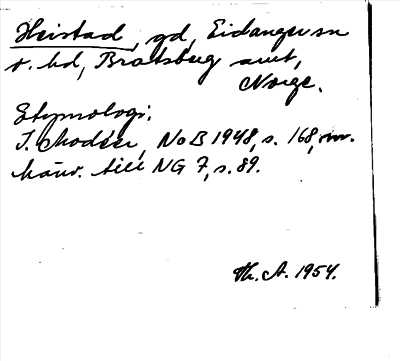 Heistad, gd, Eidanger sn
o. hd, Bratsberg amt,
Norge.
Etymologi:
I. Modéer, NoB 1948, s. 168, m.
hänv. till NG 7, s. 89.
Th. A. 1954.